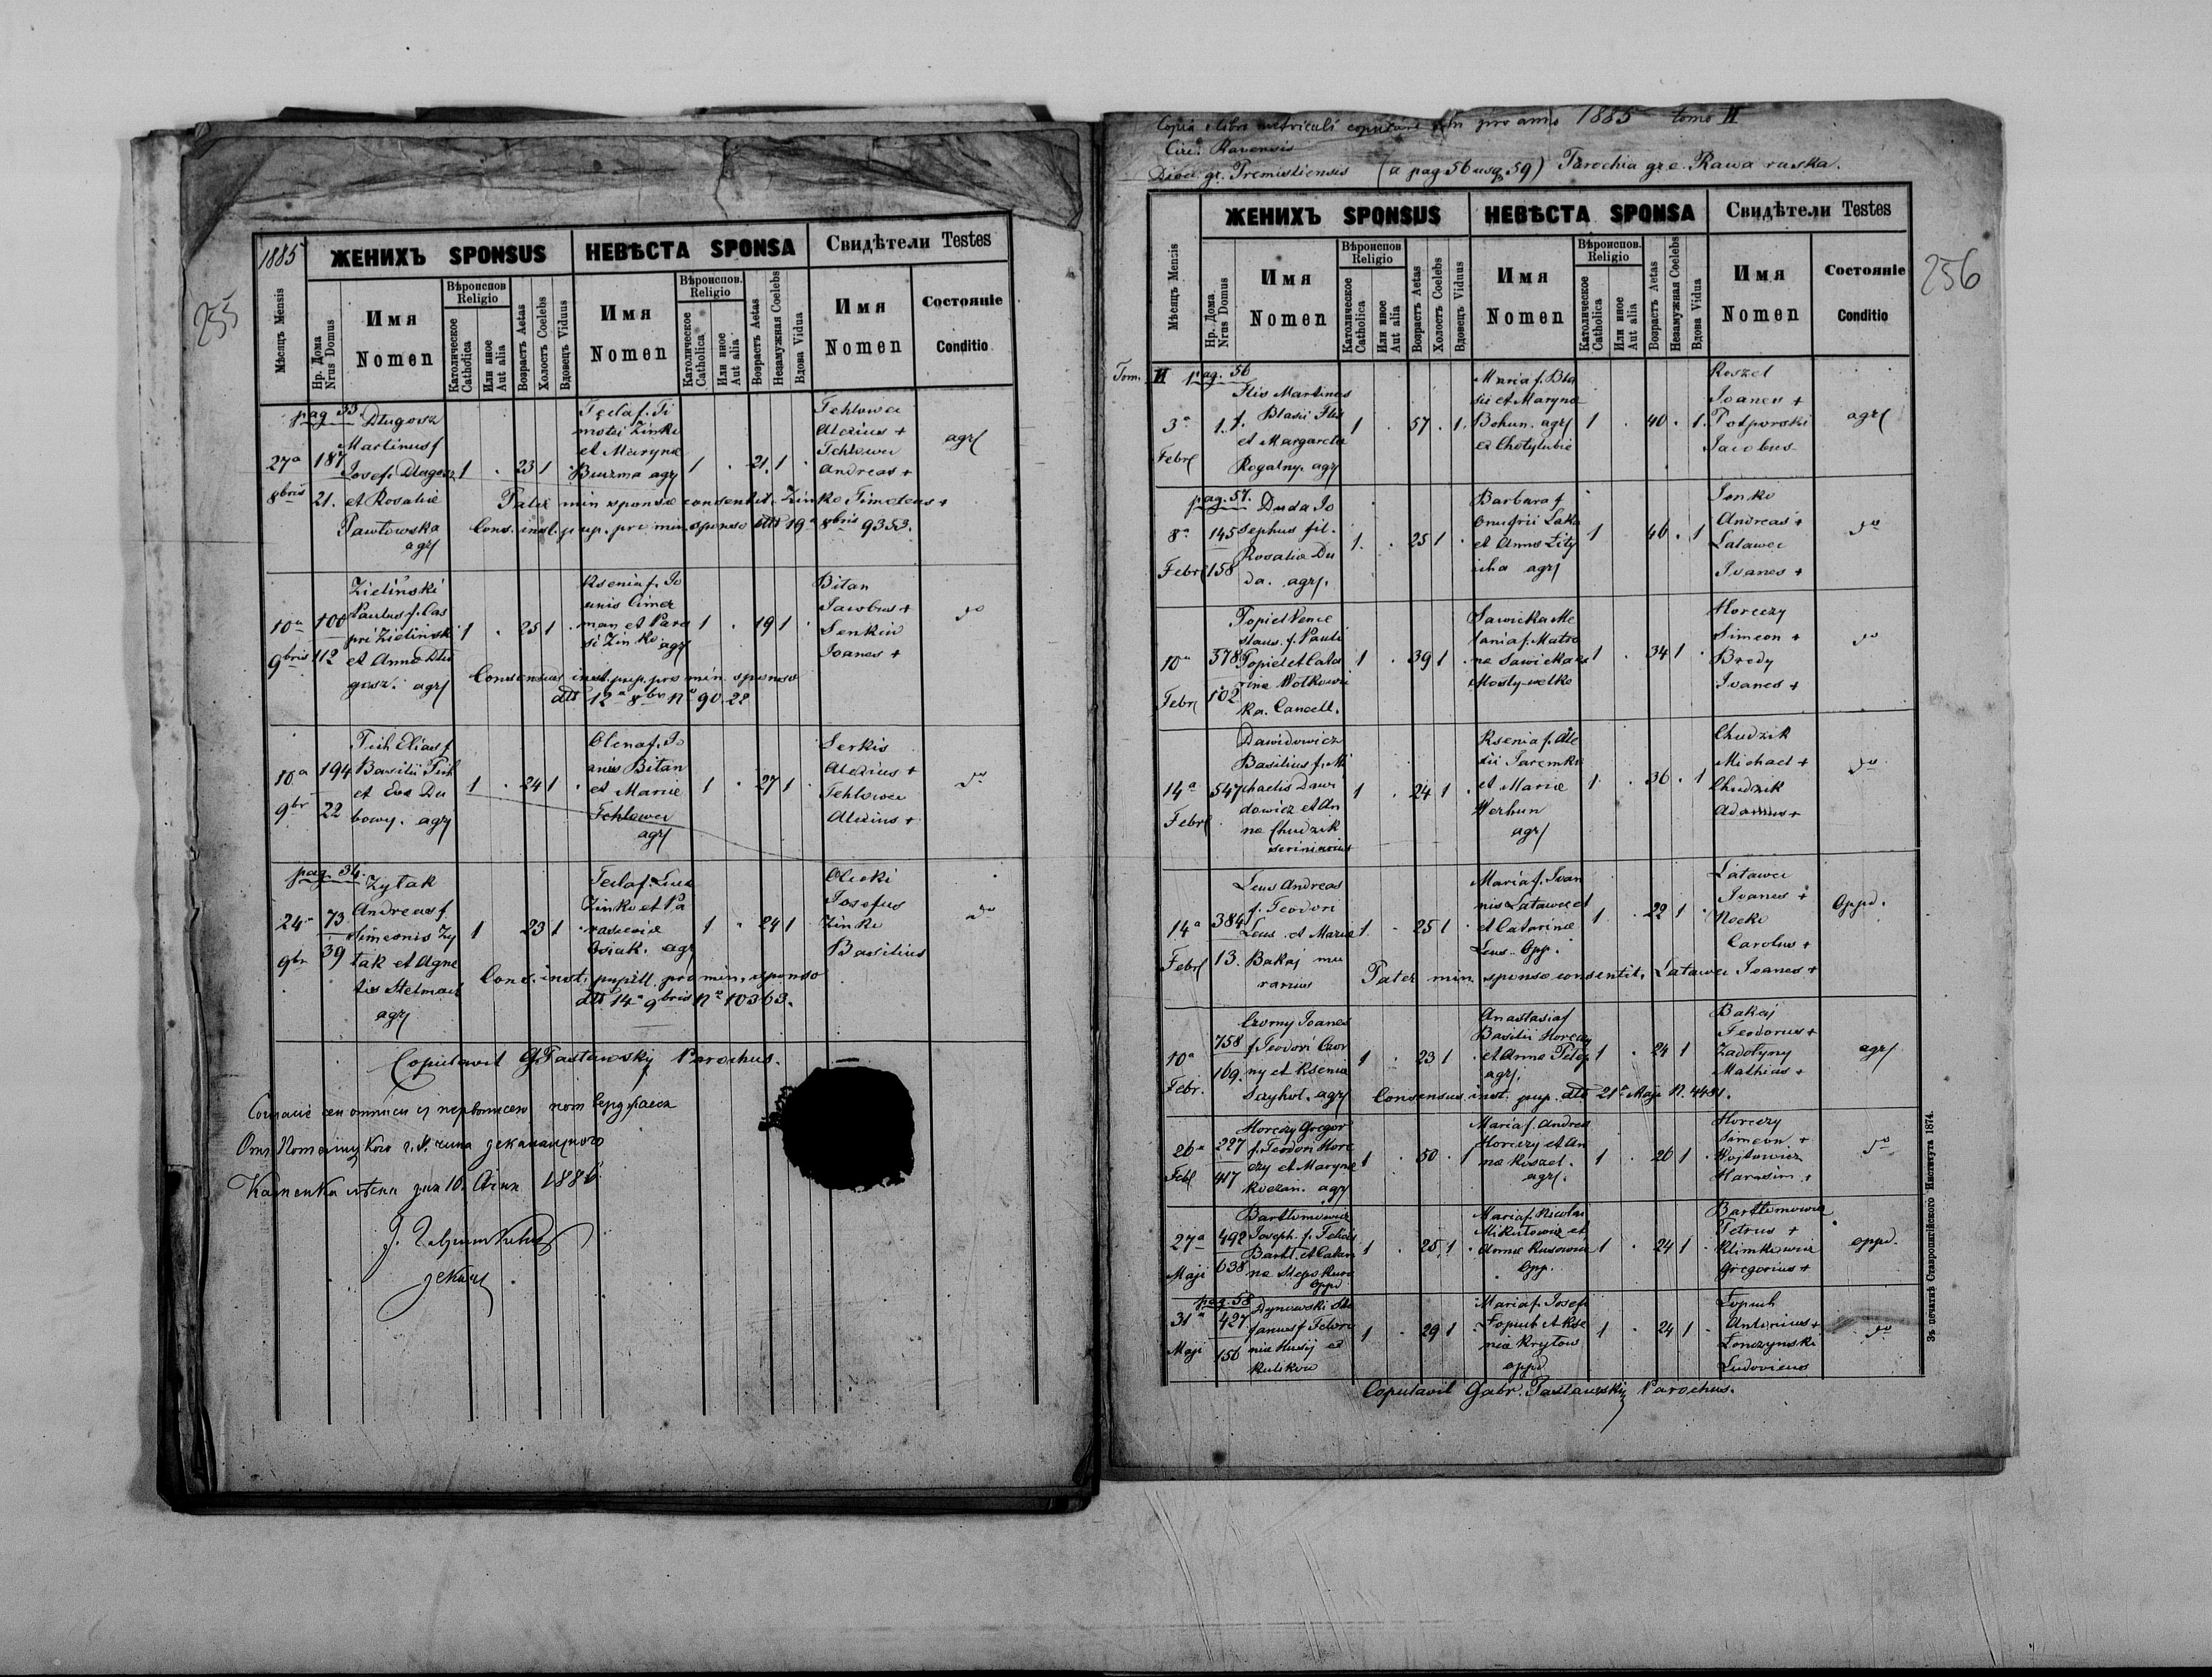 255
1885
ЖЕНИХЪ SPONSUS
НЕВѢСТА SPONSA
Свидѣтели Testes
Мѣсяцъ Mensis
Нр. Дома
Nrus Domus
Имя
Nomen
Вѣроиспов.
Religio
Католическое
Catholica
Или иное
Aut alia
Возрастъ Aetas
Холостъ Coelebs
Вдовецъ Viduus
Имя
Nomen
Вѣроиспов.
Religio
Католическое
Catholica
Или иное
Aut alia
Возрастъ Aetas
Незамужная Coelebs
Вдова Vidua
Имя
Nomen
Состоянiе
Conditio
pag. 33.
27a
8bris
187
21.
Długosz
Martinus f
Josefi Długosz
et Rosaliæ
Pawłowska
agr
1 . 23 1
Tecla f. Ti
motei Zinko
et Maryna
Buczma agr
1 . 21. 1 .
Tchlowec
Alexius +
Tchlowec
Andreas +
agr
Pater min sponsæ consentit. Zinko Timoteus +
Cons. inst. pup. pro min sponso dtto 19a 8bris 9353.
10a
9bris
100
112
Zieliński
Paulus f. Cas
pri Zieliński
et Anna Dłu
gosz. agr
1 . 25 1 .
Ksenia f. Jo
anis Cimer
man et Para
si Zinko agr
1 . 19 1 .
Bitan
Jacobus +
Senkiw
Joanes +
dto
Consensus inst. pup. pro min. sponso
dtto 12a 8br No 90.22
10a
9br
194
22
Tich Elias f
Basilii Tich
et Eva Du
bowy. agr
1 . 24 1 .
Olena f. Jo
anis Bitan
et Mariæ
Tchlowec
agr
1 . 27 1 .
Serkis
Alexius +
Tchlowec
Alexius +
dto
pag. 34.
24a
9br
73
39
Zytak
Andreas f.
Simeonis Zy
tak et Agne
tis Stelmach
agr
1 23 1 .
Tecla f. Luca
Zinko et Pa
rascevia
Osiak. agr
1 . 24 1
Olecki
Josefus
Zinko
Basilius
dto
Cons. inst. pupill. pro min. sponso
dtto 14a 9bris No 10363.
Copulavit G. Pastawskij Parochus.
Каменка
дня 10. 1886
256
Copia e libro metriculi copulatorum pro anno 1885 tomo II
Circ. Ravensis
Dioec. gr. Premisliensis (a pag 56 usq 59) Parochia gr. c. Rawa ruska.
ЖЕНИХЪ SPONSUS
НЕВѢСТА SPONSA
Свидѣтели Testes
Мѣсяцъ Mensis
Нр. Дома
Nrus Domus
Имя
Nomen
Вѣроиспов
Religio
Католическое
Catholica
Или иное
Aut alia
Возрастъ Aetas
Холостъ Coelebs
Вдовецъ Viduus
Имя
Nomen
Вѣроиспов.
Religio
Католическое
Catholica
Или иное
Aut alia
Возрастъ Aetas
Незамужная Coelebs
Вдова Vidua
Имя
Nomen
Состоянiе
Conditio
Tom. II pag. 56
3a
Febr
1.
Flis Martinus
f. Blasii Flis
et Margareta
Rogalny. agr
1 . 57 . 1.
Maria f. Bla
sii et Maryna
Bohun. agr
ex Chotylubie
1 . 40 . 1.
Koszel
Joanes +
Podporski
Jacobus
agr
pag. 57.
8a
Febr
145
158
Duda Jo
sephus fil.
Rosalia Du
da. agr.
1. . 25 1 .
Barbara f
Onufrii Laka
et Anna Zity
cha agr
1 . 46 . 1
Senko
Andreas +
Latawec
Ivanes +
dto
10a
Febr
378
102
Topiel Vence
slaus. f. Pauli
Topiel et Cata
rina Wolkows
ka. Cancell.
1 . 39 1 .
Sawicka Me
lania f. Matro
na Sawicka ex
Mosty-welke
1 . 34 1 .
Horeczy
Simeon +
Bredy
Ivanes +
dto
14a
Febr
547
Dawidowicz
Basilius f. Mi
chaelis Dawi
dowicz et An
na Chudzik
scriniarius
1 . 24 1 .
Ksenia f. Ale
xii Jaremko
et Mariæ
Werhun
agr
1. . 36 . 1
Chudzik
Michael +
Chudzik
Adamus +
dto
14a
Febr
384
13.
Leus Andreas
f. Teodori
Leus et Maria
Bakaj mu
rarius
1. . 25 1 .
Maria f. Ivan
nis Latawec et
et Catarina
Leus. Opp.
1. . 22 1 .
Latawec
Ivanes +
Nocko
Carolus +
Oppd.
Pater min sponsæ consentit. Latawec Joanes +
10a
Febr.
758
169.
Czorny Joanes
f. Teodori Czor
ny et Ksenia
Sayhot. agr
1 . 23 1
Anastasia f
Basilii Horeczy
et Anna Pelep
agr.
1 . 24 1
Bakaj
Teodorus +
Zadolyny
Mathias +
agr
Consensus inst. pup. dtto 21a Maji N. 4481.
26a
Feb
227
417
Horeczy Gregor
f. Teodori Hore
czy et Maryna
Koczan. agr
1 . 50 . 1
Maria f. Andrea
Horeczy et An
na Koszel.
agr.
1. . 26 1 .
Horeczy
Simeon +
Wojtowicz
Harasim +
dto
27a
Maji
492
638
Bartłomowicz
Joseph. f. Felicis
Bartł. et Catari
na
oppd
1 . 25 1 .
Maria f. Nicolai
Mikulowicz et
Anna Rusowicz
Opp.
1 . 24 1 .
Bartłomowicz
Petrus +
Klimkowicz
Gregorius +
oppd.
pag. 58
31a
Maji
427
156
Dynowski Ste
fanus f. Petro
nia Husij ex
Kulikow
1 . 29 1 .
Maria f. Josefi
Łopuch et Kse
nia Krylow
oppd
1 . 24 1 .
Łopuch
Antonius +
Lonczynski
Ludovicus
dto
Copulavit Gabr. Pastawskij Parochus.
Зъ печатнѣ Ставропигiйского Института 1874.